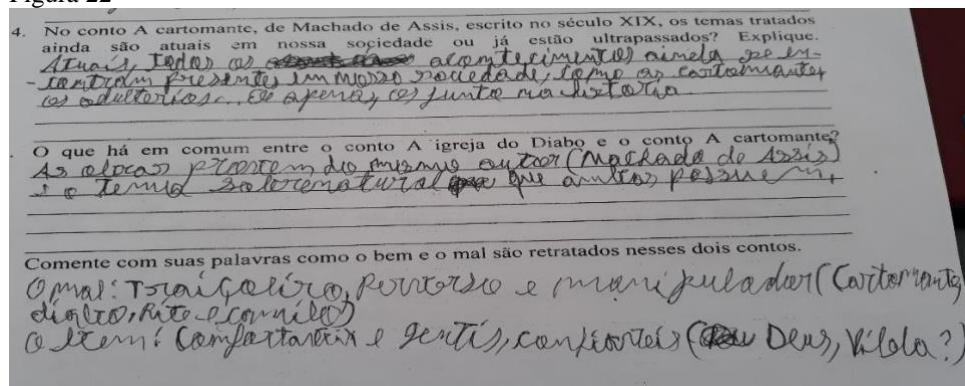 Figura 22
4. No conto A cartomante, de Machado de Assis, escrito no século XIX, os temas tratados
ainda são atuais em nossa sociedade ou já estão ultrapassados? Explique.
Atuais, todos os acontecimentos ainda se en-
-contram presentes em nossa sociedade, como as cartomantes,
os adultérios... na história
O que há em comum entre o conto A igreja do Diabo e o conto A cartomante?
As do mesmo autor (Machado de Assis)
e o tema sobrenatural que ambos possuem.
Comente com suas palavras como o bem e o mal são retratados nesses dois contos.
O mal: Traiçoeiro, Perverso e manipulador (Cartomante,
diabo, Rita e camilo)
O bem: e gentis, confiaveis (Deus, Vilela?)